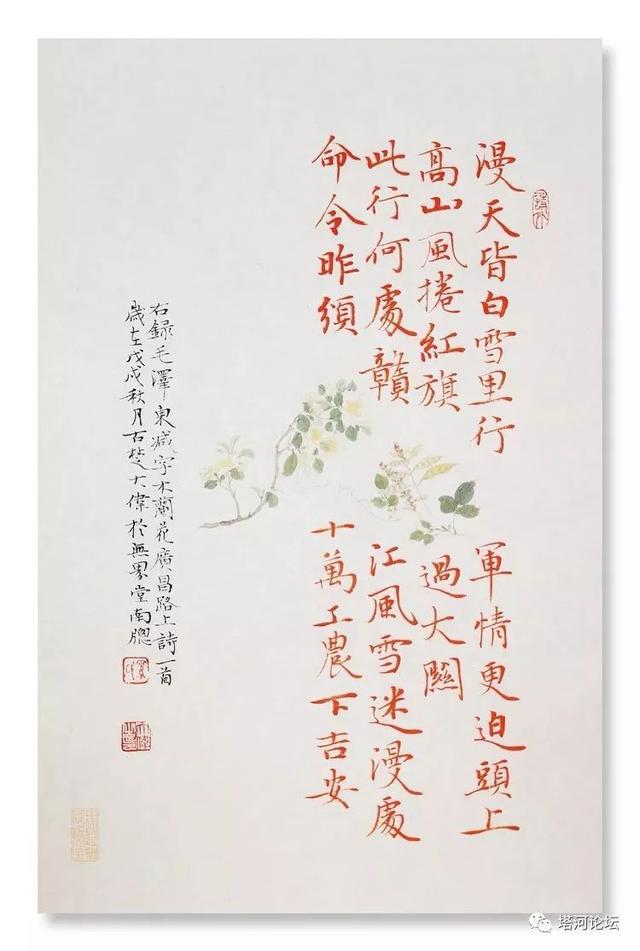 漫天皆白雪里行軍情更迫頭上
高山風捲紅旗過大關
此行何處贛江風雪迷漫處
命令昨頒十萬工農下吉安
右錄毛澤東減字木蘭花廣昌路上詩一首
歲在戊戌秋月古楚大偉於無界堂南牕
塔河论坛